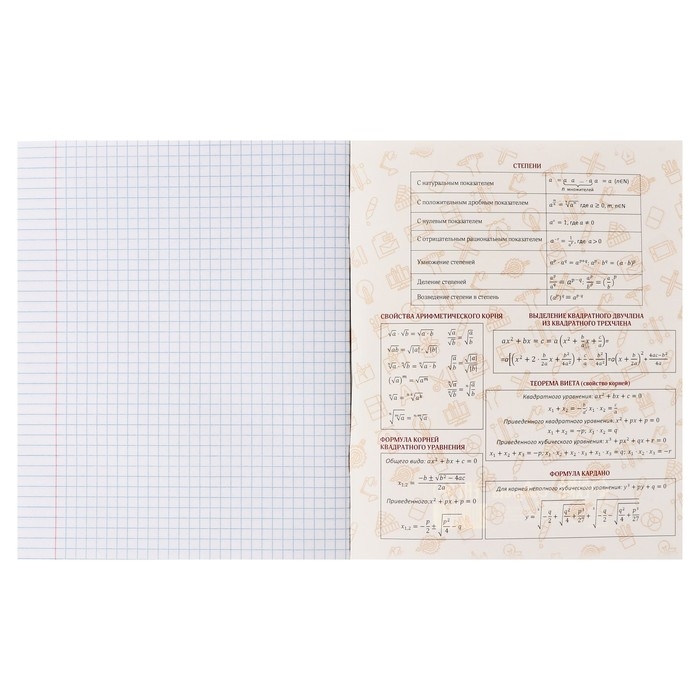 СТЕПЕНИ
С натуральным показателем
a = a a ... a a = a (n∈N)
n множителей
С положительным дробным показателем
где a ≥ 0, m, n∈N
С нулевым показателем
a° = 1, где a ≠ 0
С отрицательным рациональным показателем
где a > 0
Умножение степеней
aᵖ · a^q = a^(p+q); aᵖ · bᵖ = (a · b)ᵖ
Деление степеней
aᵖ/a^q = a^(p−q); aᵖ/bᵖ = (a/b)ᵖ
Возведение степени в степень
(aᵖ)^q = a^(pq)
СВОЙСТВА АРИФМЕТИЧЕСКОГО КОРНЯ
√a · √b = √(a · b)
√ab = √|a| · √|b|
ВЫДЕЛЕНИЕ КВАДРАТНОГО ДВУЧЛЕНА
ИЗ КВАДРАТНОГО ТРЕХЧЛЕНА
ax² + bx = c = a(x² + b/a x + c/a) =
=a[(x² + 2 · b/2a x + b²/4a²) + c/a − b²/4a²]=a(x + b/2a)² + 4ac−b²/4a
ТЕОРЕМА ВИЕТА (свойство корней)
Квадратного уравнения: ax² + bx + c = 0
x₁ + x₂ = −b/a; x₁ · x₂ = c/a
Приведенного квадратного уравнения: x² + px + p = 0
x₁ + x₂ = −p; x₁ · x₂ = q
Приведенного кубического уравнения: x³ + px² + qx + r = 0
x₁ + x₂ + x₃ = −p; x₁ · x₂ + x₂ · x₃ + x₁ · x₃ = q; x₁ · x₂ · x₃ = −r
ФОРМУЛА КОРНЕЙ
КВАДРАТНОГО УРАВНЕНИЯ
Общего вида: ax² + bx + c = 0
x₁,₂ = (−b ± √(b² − 4ac))/2a
Приведенного: x² + px + p = 0
x₁,₂ = −p/2 ± √(p²/4 − q)
ФОРМУЛА КАРДАНО
Для корней неполного кубического уравнения: y³ + py + q = 0
y = ³√(−q/2 + √(q²/4 + p³/27)) + ³√(−q/2 − √(q²/4 + p³/27))